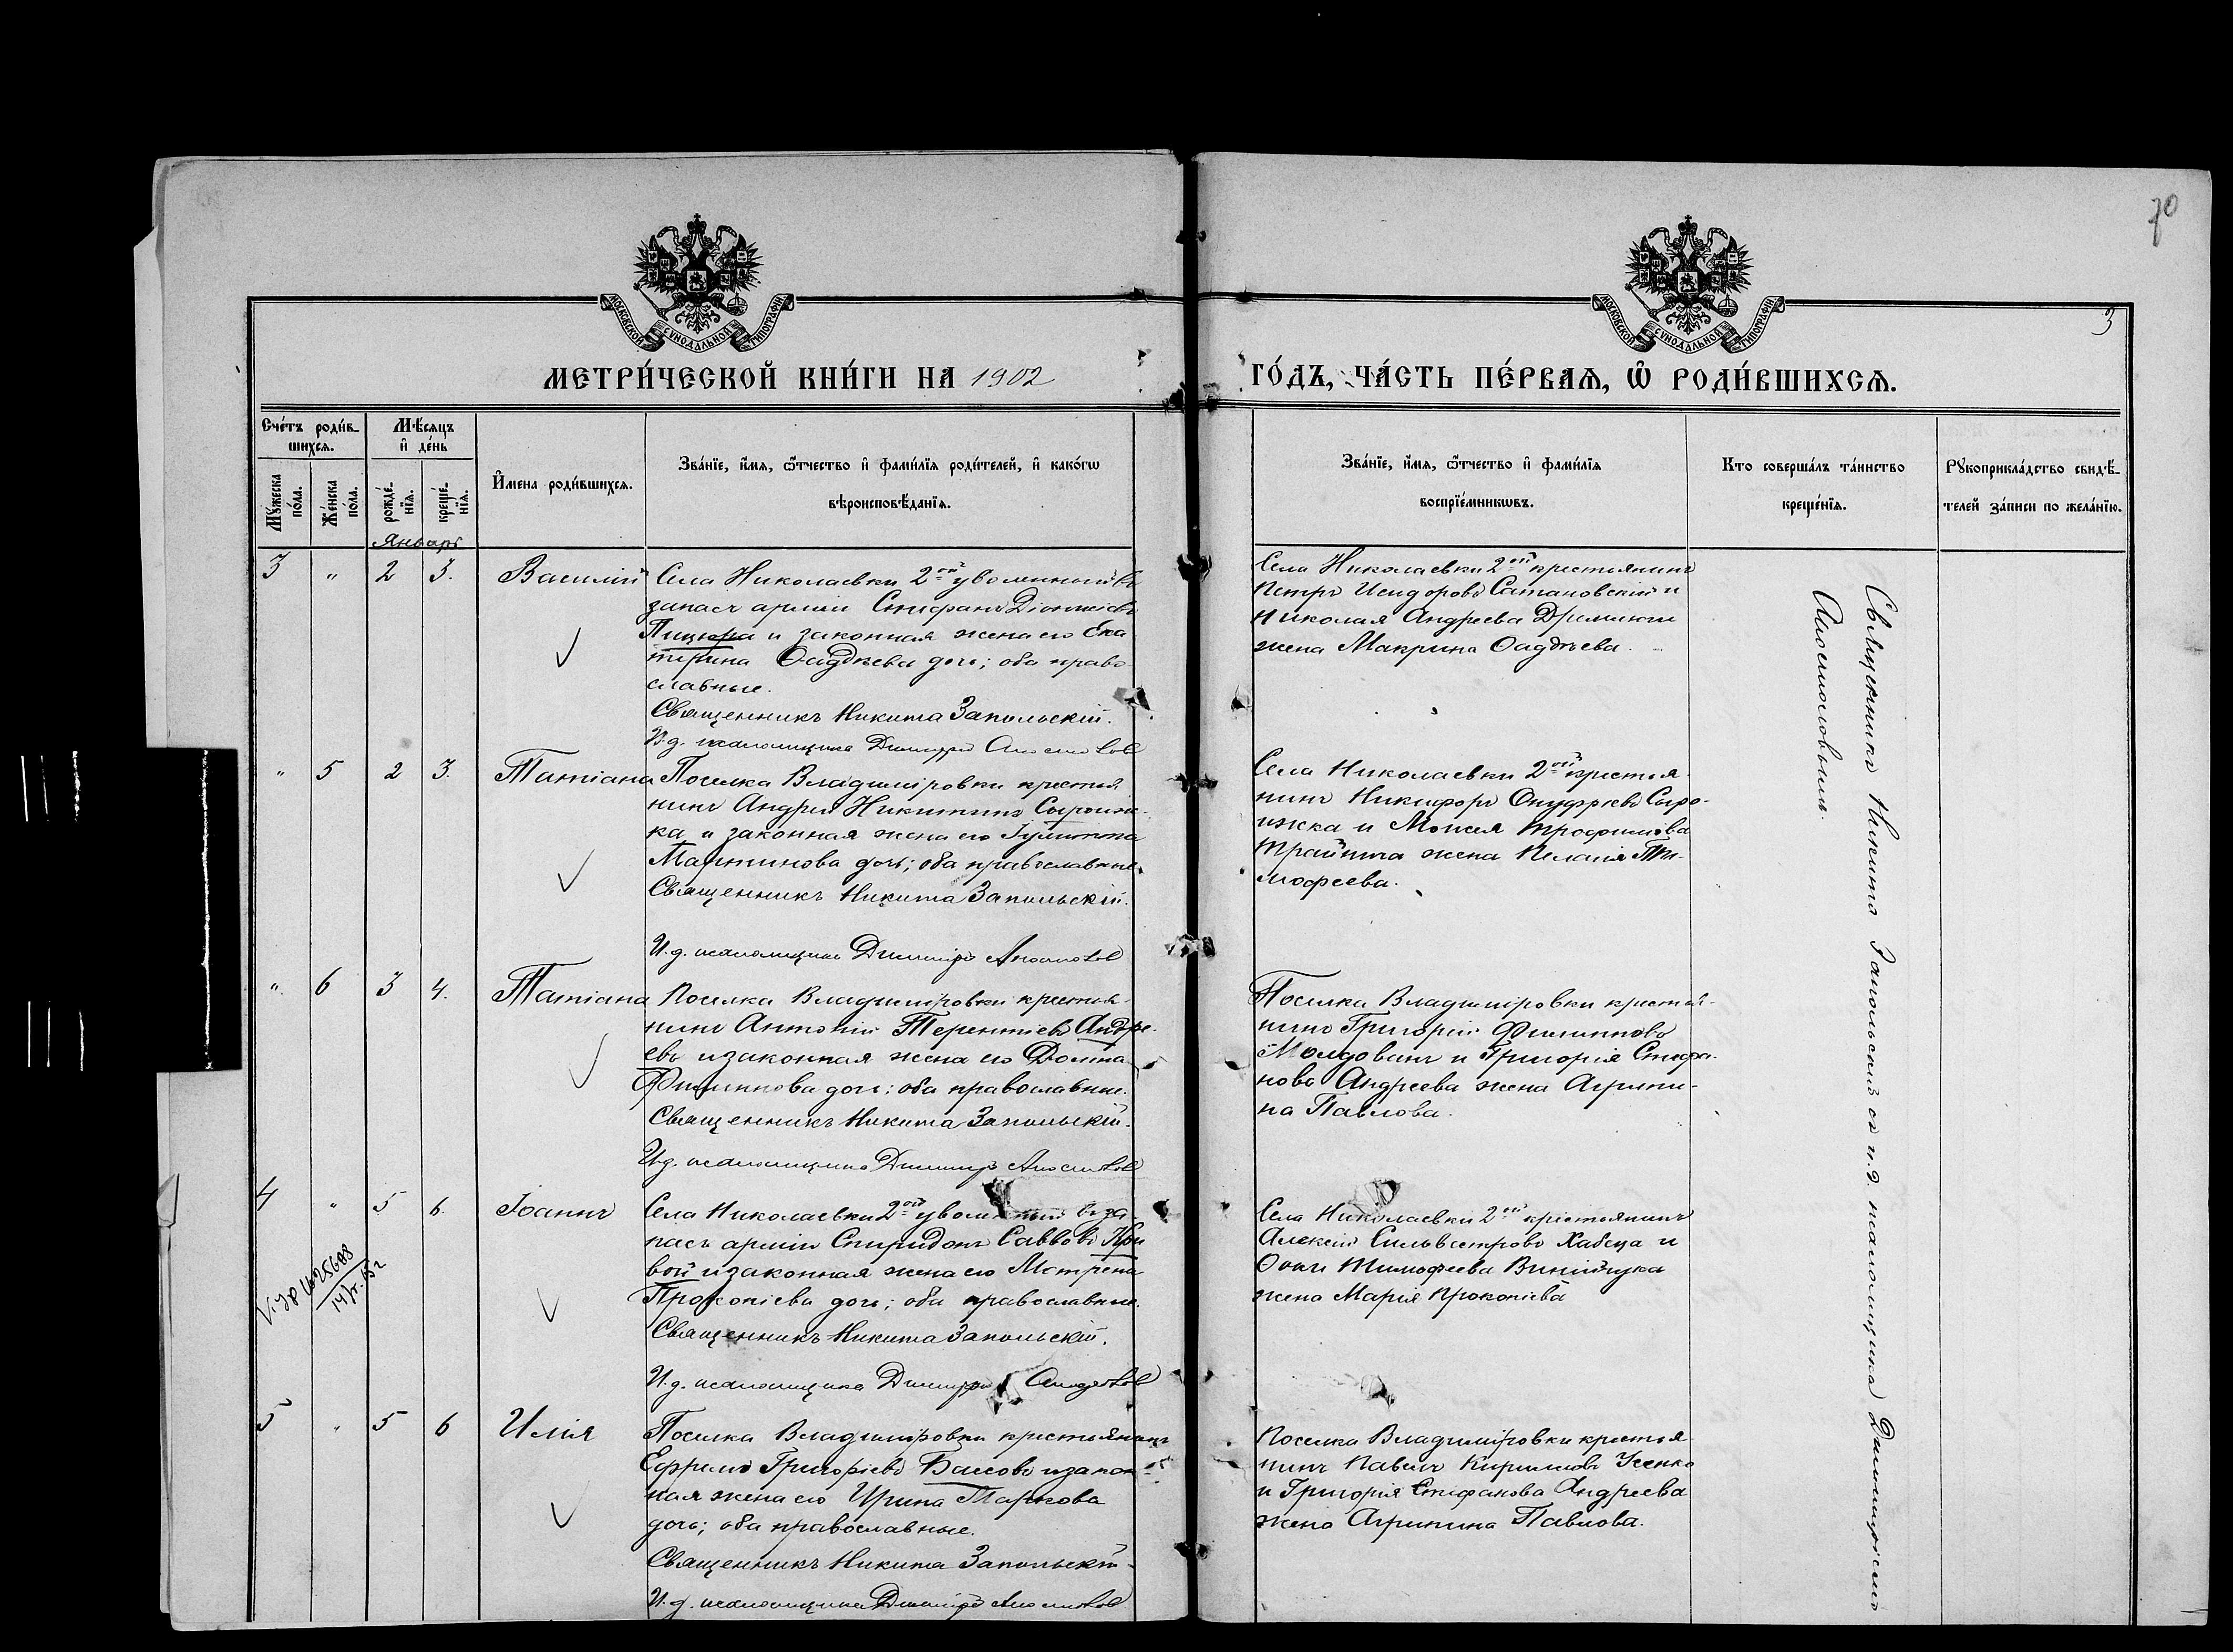 70
3
МОСКОВСКОЙ СѴНОДАЛЬНОЙ ТИПОГРАФІИ
МОСКОВСКОЙ СѴНОДАЛЬНОЙ ТИПОГРАФІИ
МЕТРИ́ЧЕСКОЙ КНИ́ГИ НА 1902
ГО́ДЪ, ЧА́СТЬ ПЕ́РВАѦ, Ѡ҆ РОДИ́ВШИХСѦ.
Сче́тъ роди́в-
шихсѧ.
Мꙋ́жеска по́ла.
Же́нска по́ла.
Мѣ́сѧцъ
и҆ де́нь
рожде́-
нїѧ.
креще́-
нїѧ.
И҆мена роди́вшихсѧ.
Зва́нїе, и҆́мѧ, ѻ҆́тчество и҆ фами́лїѧ роди́телей, и҆ како́гѡ
вѣроисповѣ́данїѧ.
Зва́нїе, и҆́мѧ, ѻ҆́тчество и҆ фами́лїѧ
воспрїе́мникѡвъ.
Кто соверша́лъ та́инство
креще́нїѧ.
Рꙋкоприкла́дство свидѣ́-
телей за́писи по жела́нїю.
Январь
3 " 2 3. Василій
Села Николаевки 2ой уволенный въ
запасъ арміи Стефанъ Діонисіевъ
Пицюра и законная жена его Ека
терина Фаддѣева дочь; оба право
славные.
Священникъ Никита Запольскій.
И. д. псаломщика Димитрій Апостолов
Села Николаевки 2ой крестьянинъ
Петръ Исидоровъ Сатановскій и
Николая Андреева
жена Макрина Фаддѣева.
" 5 2 3. Татіана
Поселка Владиміровки крестья
нинъ Андрей Никитинъ Сыроиж
ка и законная жена его Іулитта
Мартинова дочь; оба православные.
Священникъ Никита Запольскій.
И. д. псаломщика Димитрій Апостолов
Села Николаевки 2ой крестья
нинъ Никифоръ Онуфріевъ Сыро-
ижка и Моисея Трофимова
жена Пелагія Ти-
мофеева.
" 6 3 4. Татіана
Поселка Владиміровки крестья-
нинъ Антоній Терентіевъ Андре-
евъ и законная жена его Домна
Филиппова дочь; оба православные.
Священникъ Никита Запольскій.
И. д. псаломщика Димитрій Апостолов
Поселка Владиміровки крестья-
нинъ Григорій Филипповъ
Молдованъ и Григорія Стефа-
нова Андреева жена Агрипи-
на Павлова.
4 " 5 6. Іоаннъ
Села Николаевки 2ой уволенный въ за-
пасъ арміи Спиридонъ Саввовъ Кри
вой и законная жена его Мотрена
Прокопіева дочь; оба православные.
Священникъ Никита Запольскій.
И. д. псаломщика Димитрій Апостолов
Села Николаевки 2ой крестьянинъ
Алексій Сильвестровъ Хабеца и
Фомы Тимофеева Винійчука
жена Марія Прокопіева
5 " 5 6 Илія
Поселка Владиміровки крестьянинъ
Ефремъ Григорієвъ Баисовъ и закон-
ная жена его Ирина Маркова
дочь; оба православные.
Священникъ Никита Запольскій
И. д. псаломщика Димитрій Апостолов
Поселка Владиміровки крестья
нинъ Павелъ Кириловъ Усенко
и Григорія Стефанова Андреева
жена Агрипина Павлова.
Священникъ Никита Запольскій съ и. д. псаломщика Димитріемъ
Апостоловымъ.